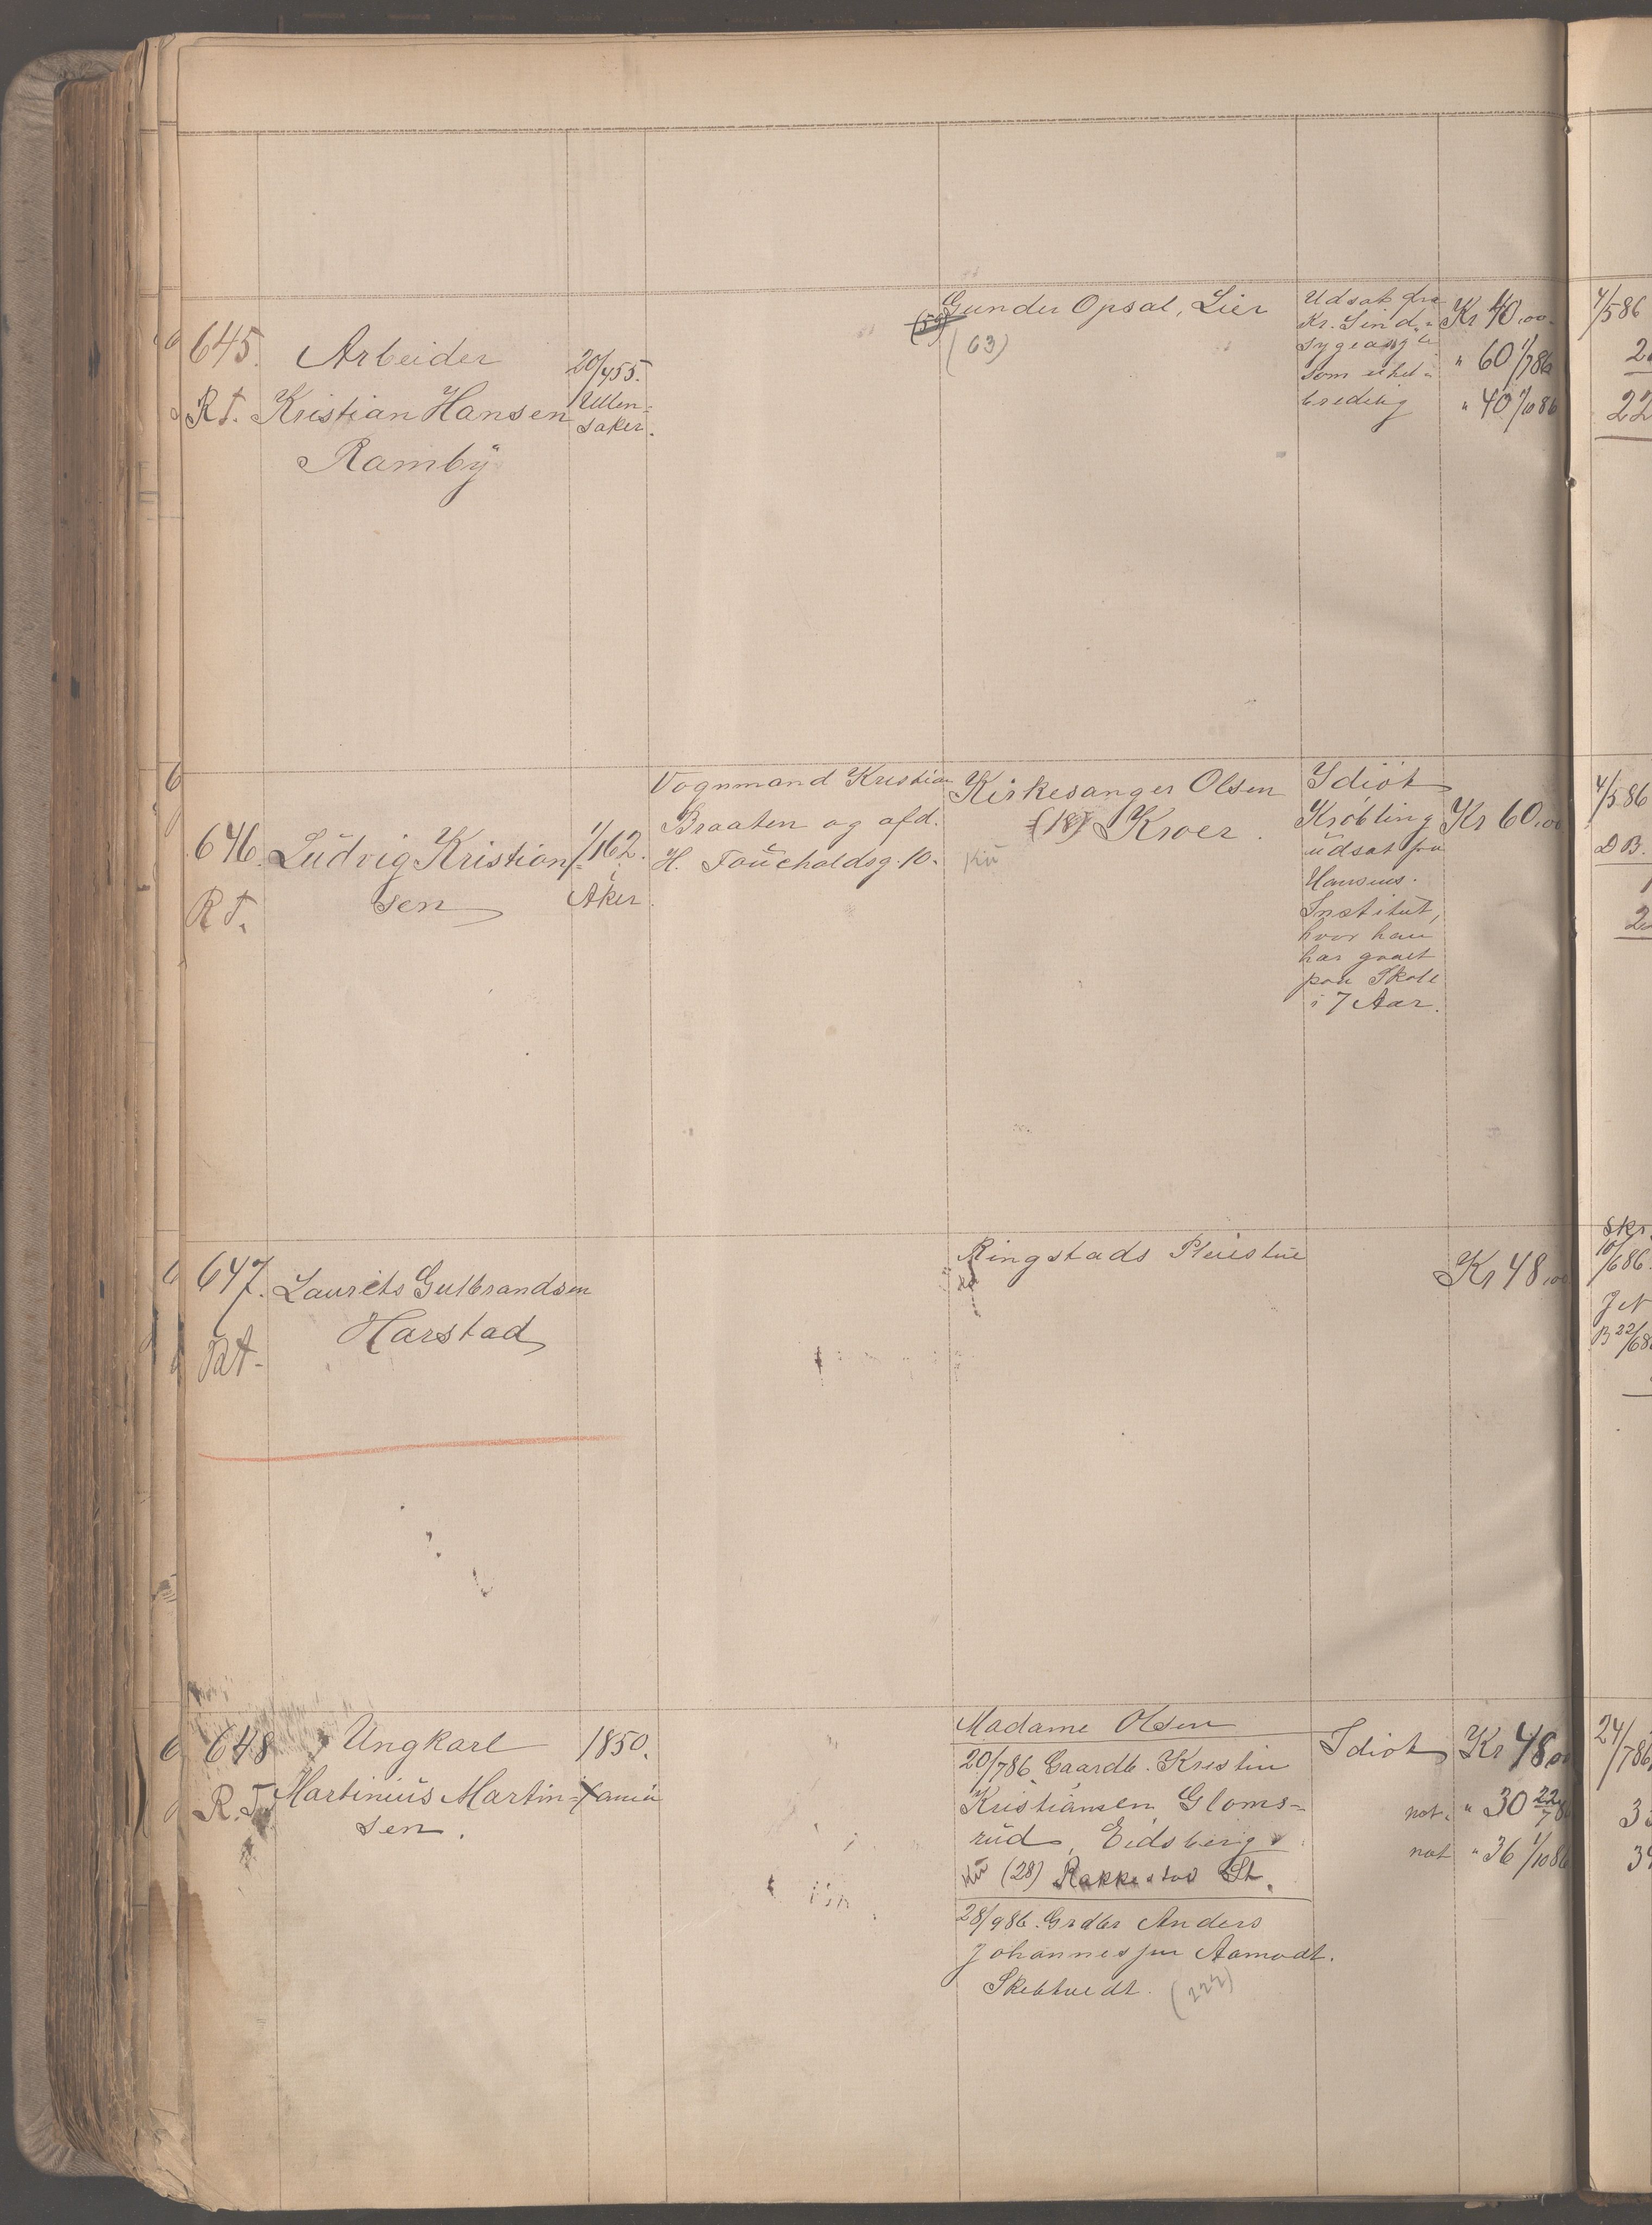 645. Arbeider
R T. Kristian Hansen
Ramby
20/4 55.
Ullen-
saker.
Gunder Opsal, Lier
(63)
Udsat fra
Kr. Sind-
sygeasyl
som
Kr 40,00
" 60 1/7 86
" 40 1/10 86
4/5 86
646. Ludvig Kristian-
R T. sen
1/1 62.
Aker.
Vognmand Kristian
Braaten og afd.
H. Toucholdsg. 10.
Kirkesanger Olsen
(18) Kroer.
Idiot
Krøbling
udsat fra
Hansens
Institut,
hvor han
har gaaet
paa Skole
i 7 Aar.
Kr 60,00
4/5 86
D B.
647. Laurits Gulbrandsen
Harstad
Ringstads Pleiestue
Kr 48,00
Skr.
10/6 86.
648 Ungkarl
R. T. Martinius Martin-
sen.
1850.
Madame Olsen
20/7 86 Gaardb. Kristin
Kristiansen Gloms-
rud, Eidsberg
(28) Rakkestad St.
28/9 86. Grdbr Anders
Johannessen Aamodt.
Skebtuedt. (222)
Idiot
Kr 48,00
not. " 30 22/7 86
not " 36 1/10 86
24/7 86